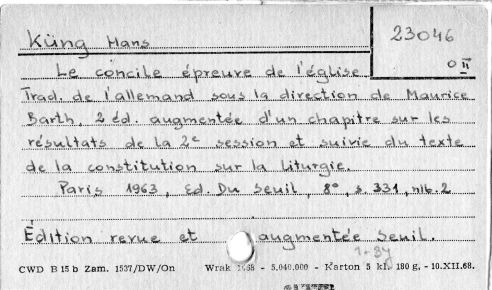 Küng Hans
23046
0 II
Le concile épreuve de l'église.
Trad. de l'allemand sous la direction de Maurice
Barth. 2 éd. augmentée d'un chapitre sur les
résultats de la 2e session et suivie du texte
de la constitution sur la Liturgie.
Paris 1963, Ed. Du Seuil, 8°, s. 331, nlb. 2
Édition revue et augmentée Seuil.
CWD B 15 b Zam. 1537/DW/On Wrak 1968 - 5.040.000 - Karton 5 kl. 180 g. - 10.XII.68.